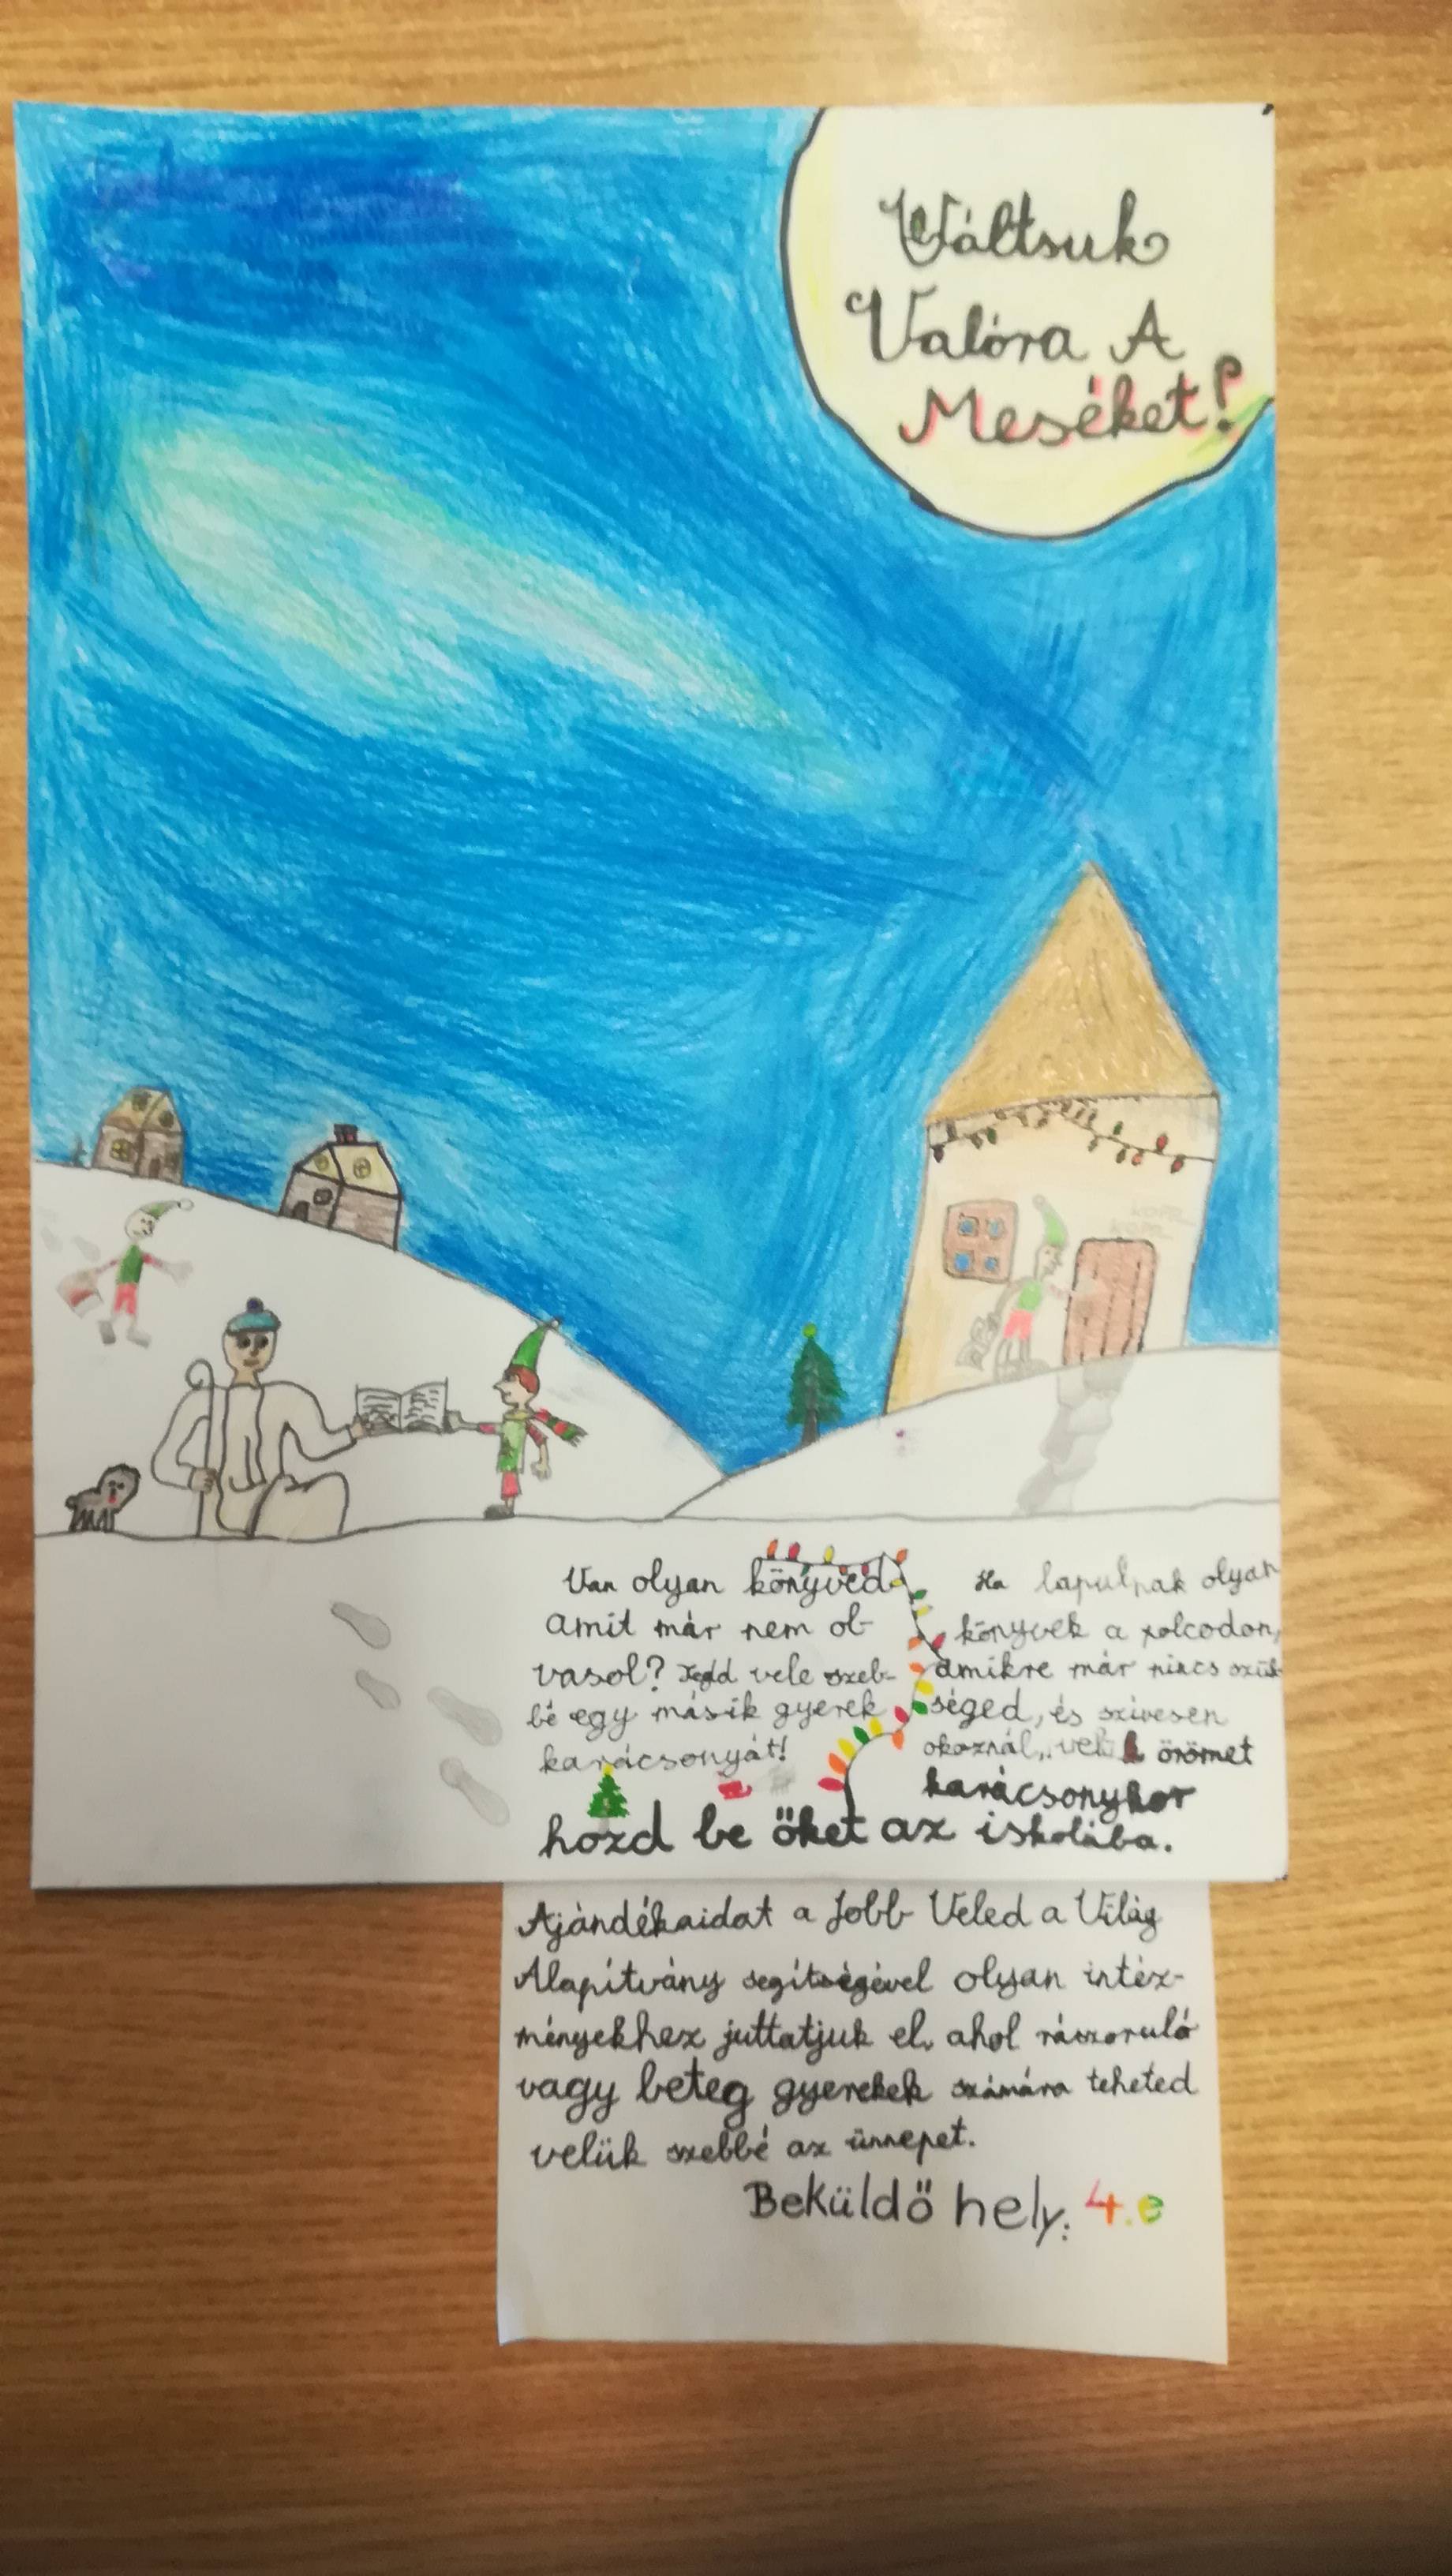 Váltsuk
Valóra A
Meséket!
kopp
kopp
Van olyan könyved
amit már nem ol-
vasol? Tedd vele szeb-
bé egy másik gyerek
karácsonyát!
Ha lapulnak olyan
könyvek a polcodon,
amikre már nincs szük-
séged, és szívesen
okoznál, velük örömet
karácsonykor
hozd be őket az iskolába.
Ajándékaidat a Jobb Veled a Világ
Alapítvány segítségével olyan intéz-
ményekhez juttatjuk el, ahol rászoruló
vagy beteg gyerekek számára teheted
velük szebbé az ünnepet.
Beküldő hely: 4.e